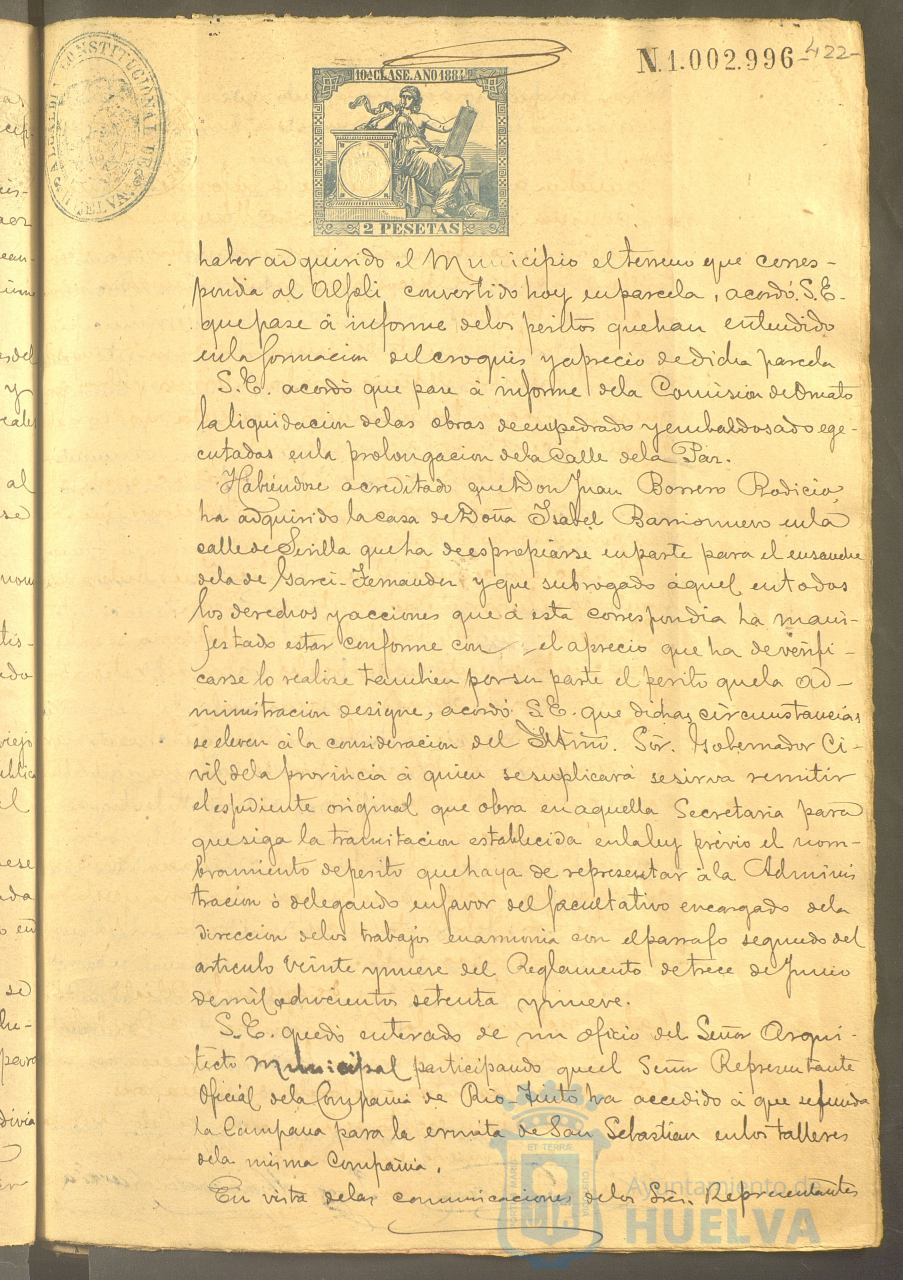 ALCALDIA CONSTITUCIONAL DE HUELVA
N.1.002.996 -422-
10ª CLASE. AÑO 1884
2 PESETAS
haber adquirido el Municipio el terreno que corres-
pondia al Alfoli convertido hoy en parcela, acordó S.E.
que pase á informe de los peritos que han entendido
en la formacion del croquis y aprecio de dicha parcela
S.E. acordó que pase á informe de la Comision de Ornato
la liquidacion de las obras de empedrado y embaldosado ege-
cutadas en la prolongacion de la Calle de la Paz.
Habiéndose acreditado que Don Juan Borrero Rodicio
ha adquirido la casa de Doña Isabel Barrionuevo en la
calle de Sevilla que ha de espropiarse en parte para el ensanche
de la de Garci-Fernandez y que subrogado áquel en todos
los derechos y acciones que á esta correspondia ha mani-
festado estar conforme con el aprecio que ha de verifi-
carse lo realize tambien por su parte el perito que la Ad-
ministracion designe, acordó S.E. que dichas circunstancias
se eleven á la consideracion del Iltmo. Sor. Gobernador Ci-
vil de la provincia á quien se suplicará se sirva remitir
el espediente original que obra en aquella Secretaria para
que siga la tramitacion establecida en la ley prévio el nom-
bramiento de perito que haya de representar á la Adminis
tracion ó delegando en favor del facultativo encargado de la
direccion de los trabajos en armonia con el parrafo segundo del
articulo veinte y nueve del Reglamento de trece de Junio
de mil ochocientos setenta y nueve.
S.E. quedó enterado de un oficio del Señor Arqui-
tecto Municipal participando que el Señor Representante
Oficial de la Compañia de Rio-Tinto ha accedido á que se funda
la Campana para la ermita de San Sebastian en los talleres
de la misma Compañia.
En vista de las comunicaciones de los Sres. Representantes
Ayuntamiento de
HUELVA